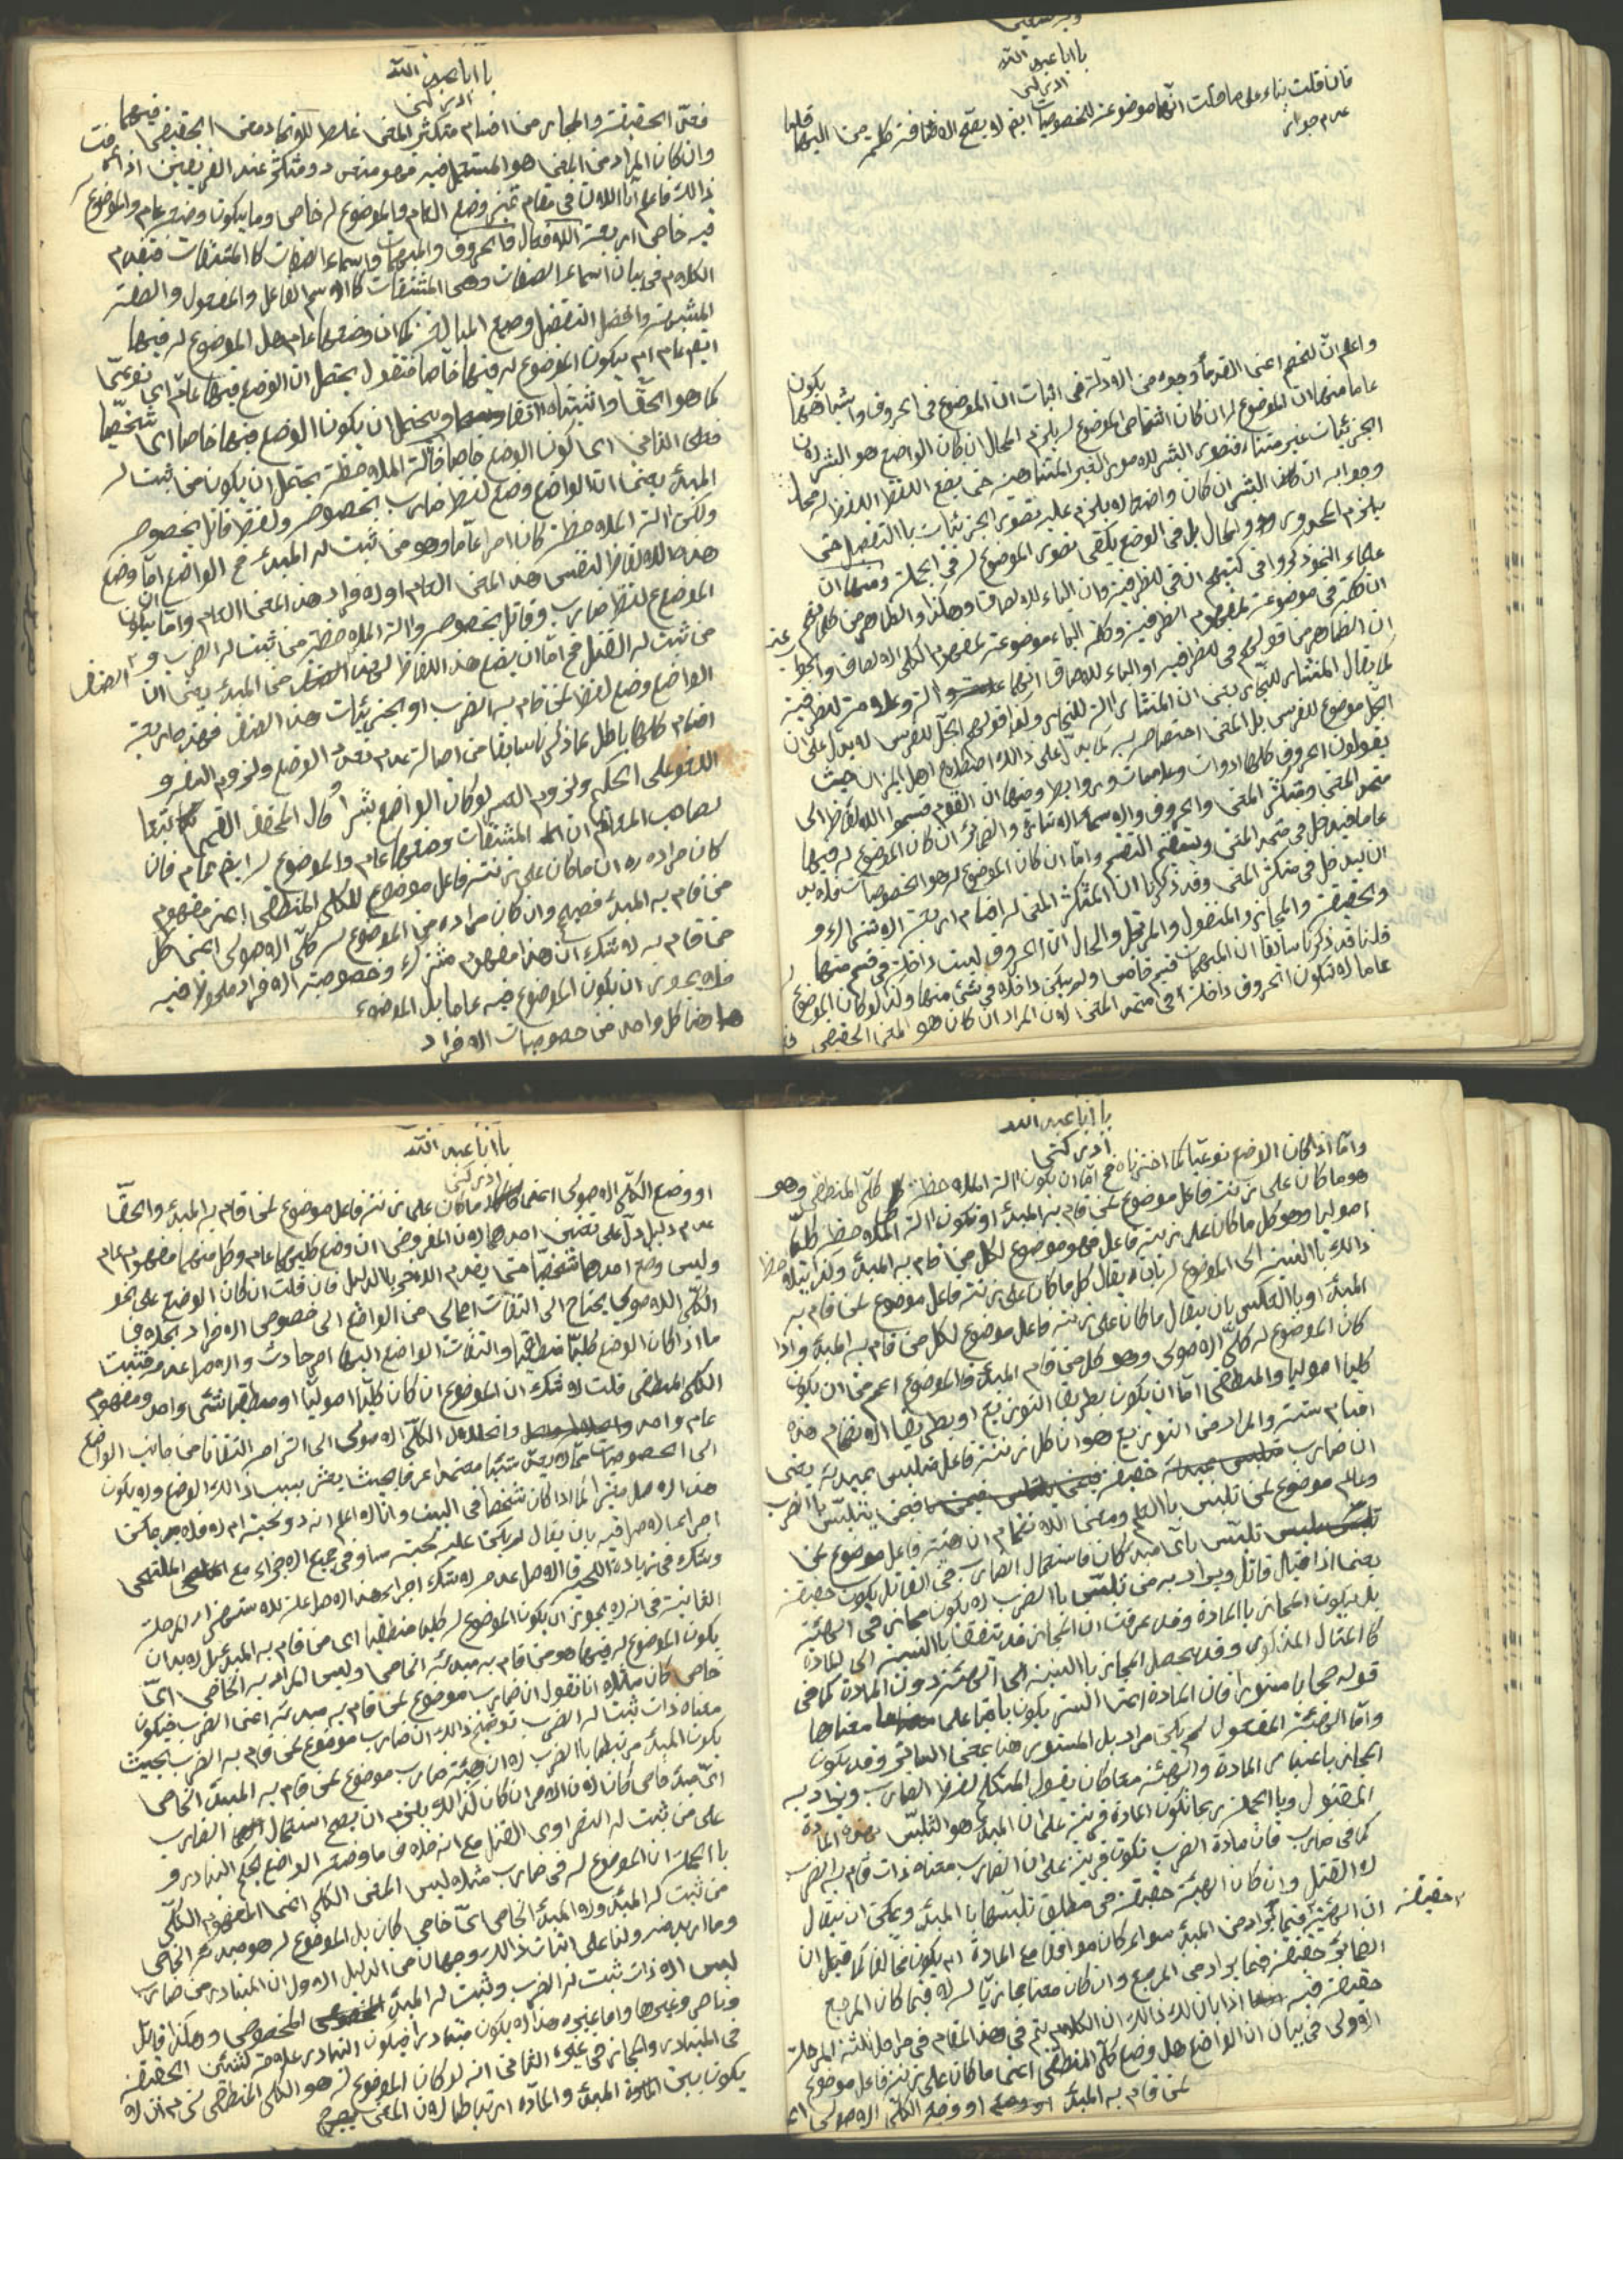 يا ابا عبد الله
ادركني
فان قلت بناء على ما قلت انها موضوعة للخصوصيات ايضا لا يصح الاضافة كلمة من اليها قلنا
عدم جواز
واعلم ان للخصم اعني القدماء وجوه من الادلة في اثبات ان الموضوع في الحروف واشباهها يكون
عاما منها ان الموضوع له ان كان اشخاص الموضوع له يلزم المحال ان كان الواضع هو البشر لان
الجزئيات غير متناه فتصور البشر للامور الغير المتناهية حتى يضع اللفظ له محال
وجوابه ان البشر ان كان واضعا لا يلزم عليه تصور الجزئيات بالتفصيل حتى
يلزم المحذور والمحال بل في الوضع يكفي تصور الموضوع له في الجملة ومنها ان
علماء النحو ذكروا في كتبهم ان في للظرفية وان الباء للالصاق وهكذا والظاهر من كلامهم
ان كلمة في موضوعة لمفهوم الظرفية وكلمة الباء موضوعة لمفهوم الكلي الالصاق والجواب عنه
ان الظاهر من قولهم في للظرفية او الباء للالصاق انها الة وعلامة للظرفية
كما يقال المنشار للنجار يعني ان المنشار الة للنجار ولهذا قولهم الجل للفرس لا يدل على ان
الجل موضوع للفرس بل المعنى اختصاص به كما يدل على ذلك اصطلاح اهل الميزان حيث
يقولون الحروف كلها ادوات وعلامات وروابط ومنها ان القوم قسموا الالفاظ الى
متحد المعنى ومتكثر المعنى والحروف والاسماء الاشارة والضمائر ان كان الموضوع له فيها
عاما فيدخل في متحد المعنى ويتفقهم التقسيم واما ان كان الموضوع له هو الخصوصيات فلا بد
ان يدخل في متكثر المعنى وقد ذكرنا ان المتكثر المعنى له اقسام اربعة الاشتراك و
والحقيقة والمجاز والمنقول والمرتجل والحال ان الحروف ليست داخلة في قسم منها
قلنا قد ذكرنا سابقا ان المبهمات قسم خامس ولم يكن داخلة في شيء منها ولو كان الموضوع له
عاما لا تكون الحروف داخلة في متحد المعنى لان المراد ان كان هو المعنى الحقيقي
يا ابا عبد الله
ادركني
فعد الحقيقة والمجاز من اقسام متكثر المعنى غلط للاتحاد معنى الحقيقي فيهما
وان كان المراد من المعنى هو المستعمل فيه فهو متعدد ومتكثر عند الفريقين اذا عرفت
ذلك فاعلم ان الالات في مقام تميز وضع العام والموضوع له خاص وما يكون وضع عام والموضوع
فيه خاص اربعة الافعال والحروف والمبهمات واسماء الصفات كالمشتقات فنقدم
الكلام في بيان اسماء الصفات وهي المشتقات كالاسم الفاعل والمفعول والصفة
المشبهة وافعل التفضيل وصيغ المبالغة كما ان وضعها عام هل الموضوع له فيها
ايضا عام ام يكون الموضوع له فيها خاصا فنقول يحتمل ان الوضع فيها عام اي نوعيا
كما هو الحق واثبتناه انفا ويحتمل ان يكون الوضع فيها خاصا اي شخصيا
فعلى الثاني اي كون الوضع خاصا فآلة الملاحظة يحتمل ان يكون من ثبت له
المبدء يعني ان الواضع وضع لفظ ضارب بخصوصه ولفظ قاتل بخصوصه
ولكن الة الملاحظة كان امرا عاما وهو من ثبت له المبدء فح الواضع اما وضع
هذه الالفاظ لنفس هذا المعنى العام او لافراد هذا المعنى العام واما يكون
الموضوع لفظ ضارب وقاتل بخصوصه والة الملاحظة من ثبت له الضرب و
من ثبت له القتل فح اما ان يضع هذا اللفاظ لهذا الصنف من المبدء يعني ان
الواضع وضع لفظ لمن قام به الضرب او الجزئيات هذا الصنف فهذه صار اربعة
اقسام كلها باطل لما ذكرنا سابقا من اصالة عدم تعدد الوضع ولزوم العبث و
اللغو على الحكيم ولزوم العسر لو كان الواضع بشرا قال المحقق القمي تبعا
لصاحب المعالم ان المشتقات وضعها عام والموضوع له ايضا عام فان
كان مراده ره ان ما كان على زنة فاعل موضوع للكلي المنطقي اعني مفهوم
من قام به المبدء فصحيح وان كان مراده من الموضوع له كلي الاصولي اعني كل
من قام به لا شك ان هذا مفهوم مشترك وخصوصية الافراد ملحوظ فيه
فلا يجوز ان يكون الموضوع فيه عاما بل الموضوع
هنا كل واحد من خصوصيات الافراد
يا ابا عبد الله
ادركني
واما اذا كان الوضع نوعيا كما اخترناه فح اما ان يكون الة الملاحظة كلي المنطقي وهو
هو ما كان على زنة فاعل موضوع لمن قام به المبدء او تكون الة الملاحظة كليا
اصوليا وهو كل ما كان على زنة فاعل فهو موضوع لكل من قام به المبدء وكذا يلاحظ
ذلك بالنسبة الى الموضوع له بان يقال كل ما كان على زنة فاعل موضوع لمن قام به
المبدء او بالعكس بان يقال ما كان على زنة فاعل موضوع لكل من قام به المبدء واذا
كان الموضوع له كلي الاصولي وهو كل من قام المبدء فالموضوع اعم من ان يكون
كليا اصوليا والمنطقي اما ان يكون بطريق التوزيع او بطريق الانضمام هذه
اقسام ستة والمراد من التوزيع هو ان كل زنة فاعل متلبس بمبدئه يعني
ان ضارب حقيقة فيمن يتلبس بالضرب
وعالم موضوع لمن تلبس بالعلم ومعنى الانضمام ان هيئة فاعل موضوع لمن
تلبس باي مبدء كان فاستعمال الضارب في القاتل يكون حقيقة
يعني اذا قيل قاتل ويراد به من تلبس بالضرب لا يكون مجاز في الهيئة
بل يكون المجاز بالمادة وقد عرفت ان المجاز قد يتحقق بالنسبة الى المادة
كالمثال المذكور وقد يحصل المجاز بالنسبة الى الهيئة دون المادة كما في
قوله حجابا مستورا فان المادة اعني الستر يكون باقيا على معناها
واما الهيئة المفعول لم يكن مراد بل المستور هنا بمعنى الساتر وقد يكون
المجاز باعتبار المادة والهيئة معا كان يقول المتكلم لفظ الضارب ويراد به
المقتول وبالجملة ربما تكون المادة قرينة على ان المبدء هو التلبس بهذه المادة
كما في ضارب فان مادة الضرب تكون قرينة على ان الضارب معناه ذات قام به الضرب
لا القتل وان كان الهيئة حقيقة في مطلق تلبسها بالمبدء ويمكن ان يقال
ان الهيئة حقيقة فيما يراد من المبدء سواء كان موافقا مع المادة ام يكون مخالفا كما قيل ان
الضمائر حقيقة فيما يراد من المرجع وان كان معنا مجازيا له لا فيما كان المرجع
حقيقة فيه اذا بان لك ذلك ان الكلام يتم في هذا المقام في مراحل ثلثة المرحلة
الاولى في بيان ان الواضع هل وضع كلي المنطقي اعني ما كان على زنة فاعل موضوع
لمن قام به المبدء او وضع الكلي الاصولي
يا ابا عبد الله
ادركني
او وضع الكلي الاصولي اعني كل ما كان على زنة فاعل موضوع لمن قام به المبدء والحق
عدم دليل دل على تعيين احدهما لان المفروض ان وضع كليهما عام وكل منهما مفهوم عام
وليس وضع احدهما شخصيا حتى يقدم الاخر بالدليل فان قلت ان كان الوضع على نحو
الكلي الاصولي يحتاج الى التفات اجمالي من الواضع الى خصوص الافراد بخلاف
ما اذا كان الوضع كليا منطقيا والتفات الواضع اليها امر حادث والاصل عدمه فثبت
الكلي المنطقي قلت لا شك ان الموضوع ان كان كليا اصوليا او منطقيا شيء واحد ومفهوم
عام واحد وانحلال الكلي الاصولي الى التزام التفاتا من جانب الواضع
الى الخصوصيات مما لا يعد شيئا معتمدا عرفا بحيث يعتن بسبب ذلك الوضع ولا يكون
هذا الاصل معتبرا كما اذا كان شخصا في البيت وانا لا اعلم انه ذو لحية ام لا فلا يمكن
اجراء الاصل فيه بان يقال لم يكن عليه لحية مساو في جميع الاجزاء مع الملتحي
ويشك في زيادة اللحية فالاصل عدمه لا شك اجراء هذا الاصل علة للاستهزاء المرحلة
الثانية في انه لا يجوز ان يكون الموضوع له كليا منطقيا اي من قام به المبدء بل لا بد ان
يكون الموضوع له فيها هو من قام به مبدئه الخاص وليس المراد به الخاص اي
خاص كان مثلا انا نقول ان ضارب موضوع لمن قام به مبدئه اعني الضرب فيكون
معناه ذات ثبت له الضرب توضيح ذلك ان ضارب موضوع لمن قام به الضرب بحيث
يكون المبدء مرتبطا بالضرب لا ان هيئة ضارب موضوع لمن قام به المبدء الخاص
اي مبدء خاص كان لان الامر ان كان كذلك يلزم ان يصح استعمال الضارب
على من ثبت له النصر او القتل مع انه خلاف ما وضعه الواضع بحكم التبادر و
بالجملة ان الموضوع له في ضارب مثلا ليس المعنى الكلي اعني المفهوم الكلي
من ثبت له المبدء ولا المبدء الخاص اي خاص كان بل الموضوع له هو مبدئه الخاص
وما اريد منه ولنا على اثبات ذلك وجهان من الدليل الاول ان المتبادر من ضارب
ليس الا ذات ثبت له الضرب وثبت له المبدء المخصوص وهكذا قاتل
وناصر وغيرها واما غيره هذا لا يكون متبادرا فيكون التبادر علامة لتعيين الحقيقة
في المتبادر والمجاز في غيره الثاني انه لو كان الموضوع له هو الكلي المنطقي لزم ان لا
يكون بين المبدء والمادة ارتباطا لان المعنى يصح